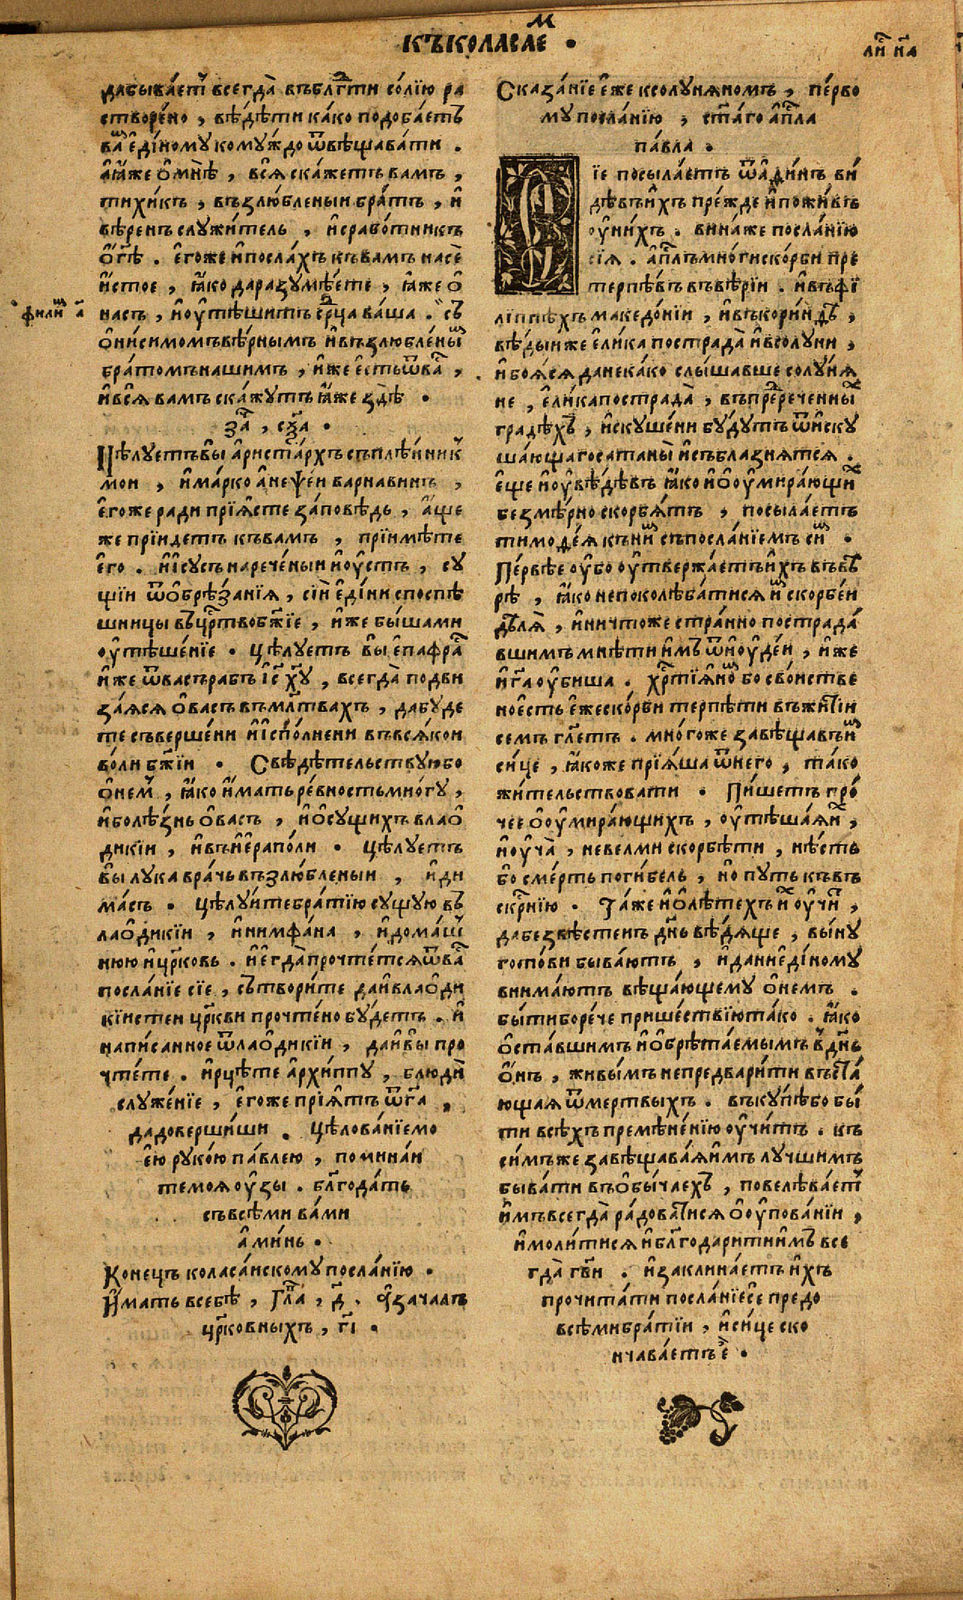 къколасаем •
ли҃ н҃а
дабыва́етⷭ҇ всегда̀ въбл҃гⷣти со́лїю ра
створе́но , вѣ́дѣти ка́ко подоба́етъ
ваⷨ е҆ди́ному кому́ждо ѿвѣщава́ти .
а҆ꙗ҆́же ѻ҆мнѣ̀ , всѧ̀ ска́жетъ ва́мъ ,
тихи́къ , възлю́бленыи бра́тъ , и҆
вѣ́ренъ служи́тель , и҆срабо́тникъ
ѻ҆г҃ѣ . е҆го́же и҆посла́хъ къва́мъ насѐ
и҆́стое , ꙗ҆́ко даразꙋмѣ́ете , ꙗ҆́же ѻ҆
на́съ , и҆ꙋ҆тѣши́тъ срⷣца ва́ша . съ
филиⷨ а҃
ѻ҆ниси́момъ вѣ́рнымъ и҆възлю́бленыⷨ
бра́томъ на́шимъ , и҆́же е҆́сть ѿва́ⷭ ,
и҆всѧ̀ ва́мъ ска́жꙋтъ ꙗ҆́же здѣ̀ •
за́ⷱ , сн҃а •
Цѣлꙋ́етъ вы̀ а҆риста́рхъ съплѣ́нникⸯ
мои , и҆ма́рко а҆неѱе́и варна́винъ ,
е҆го́же ради прїѧ́сте за́повѣдь , а҆́ще
же прїи́детъ къва́мъ , прїимѣ́те
е҆го̀ . и҆і҆сꙋ́съ нарече́ныи и҆ꙋ́стъ , сꙋ́
щїи ѿѻ҆брѣ́занїѧ , сїи е҆ди́ни споспѣ́
шницы въцрⷭ҇твобж҃їе , и҆́же бы́шами
ꙋ҆тѣше́нїе . цѣлꙋ́етъ вы̀ е҆пафра́ⷭ
и҆́же ѿва́съ ра́бъ і҆с҃ х҃ꙋ , всегда̀ подви
за́ѧсѧ ѻ҆ва́съ въмл҃твахъ , да бꙋ́де
те съверше́ни и҆и҆спо́лнени въвсѧ́кои
во́ли бж҃їи . Свѣдѣ́тельствꙋюбо
ѻ҆не́мⸯ , ꙗ҆́ко и҆́мать ре́вность мно́гꙋ ,
и҆болѣ́знь ѻ҆ва́съ , и҆ѻ҆сꙋ́щихъ влаѻ
диќїи , и҆въи҆ера́поли • Цѣлꙋ́етъ
вы лꙋка́ врачь възлю́бленыи , и҆ди
ма́съ . цѣлꙋ́ите бра́тїю сꙋ́щꙋю въ
лаѻ҆дикі́и , и҆нимфа́на , и҆дома́ш
нюю и҆́ цр҃ковь . и҆егда̀ прочте́тсѧ ѿва́ⷭ
посла́нїе сїѐ , сътвори́те да и҆влаѻ҆ди
кїистеи цр҃кви прочте́но бꙋ́детъ . и҆
напи́санное ѿлаѻ҆дикі́и , да и҆вы̀ про
чте́те . и҆рцѣ́те а҆рхи́ппꙋ , блюдѝ
слꙋже́нїе , е҆го́же прїѧ́тъ ѿг҃а ,
дадоверши́ши . цѣлова́нїемо
е́ю рꙋко́ю па́влею , помина́и
темоѧ̀ ꙋ҆́зы . бл҃года́ть
съвсѣ́ми ва́ми
а҆ми́нь .
Конецъ коласа́искомꙋ посла́нїю .
И҆мать всебѣ̀ , главⷭ , д҃ . и҆зача́лъ
цр҃ковныхъ , г҃і .
Сказа́нїе е҆́же ксолꙋ́нѧномъ , пе́рво
мꙋ посла́нїю , ст҃а́го а҆пⷭ҇ла
па́вла .
Сїѐ посыла́етъ ѿа҆ди́нъ ви
дѣ́въ и҆́хъ пре́жде и҆пожи́въ
ꙋ҆ни́хъ . вина́же посла́нїю
сїѧ̀ . а҆пⷭ҇лъ мно́ги ско́рби пре
терпѣ́въ въвѣ́рїи . и҆въфи
лі́ппѣхъ македо́нїи , и҆въкори́нѳѣ ,
вѣ́дыи же е҆ли́ка пострада̀ и҆всолꙋ́ни ,
и҆боѧ́сѧ данека́ко слы́шавше солꙋ́нѧ
не , е҆ли́ка пострада̀ , въпрⷣерече́нныⷯ
гра́дѣхъ , и҆скꙋше́ни бꙋ́дꙋтъ ѿи҆скꙋ
ша́ющаго сатаны̀ и҆съблазнѧ́тсѧ .
е҆ще и҆ꙋ҆вѣ́дѣвъ ꙗ҆́ко и҆ѻ҆ꙋ҆мира́ющиⷯ
безмѣ́рно скорбѧ́тъ , посыла́етъ
тимоѳе́ѧ къни́ⷨ съпосла́нїемъ си́ⷨ .
Пе́рвѣе ꙋ҆́бо ꙋ҆твержа́етъ и҆́хъ въвѣ́
рѣ , ꙗ҆́ко непоколѣба́тисѧ и҆́ⷨ скорбе́и
дѣлѧ̀ , и҆ничто́же стра́нно пострада́
вшимъ мнѣ́ти и҆́мъ ѿи҆ꙋде́и , и҆́же
и҆г҃а ꙋ҆би́ша . хрⷭ҇тїѧ́ноⷨ бо сво́иствено
е҆́сть е҆́же ско́рби терпѣ́ти въжитїи́
се́мъ гл҃етъ . мно́гоже завѣща́въ и҆ⷨ
си́це , ꙗ҆́коже прїѧ́ша ѿнего̀ , та́ко
жи́тельствовати . Пи́шетъ про́
чее ѻ҆ꙋ҆мира́ющихъ , ꙋ҆тѣша́ѧ и҆ⷯ ,
и҆ꙋча̀ , невелми скорбѣ́ти , нѣ́сть
бо сме́рть поги́бель , но пꙋть къвъ
скрⷭ҇нїю . Та́же и҆ѻ҆лѣ́техъ и҆ⷯ ꙋ҆чи́ⷮ ,
да безвѣ́стенъ дн҃ь вѣ́дѧще , вы́нꙋ
госпо́ви быва́ютъ , и҆да ниеди́номꙋ
внима́ютъ вѣща́ющемꙋ ѻ҆не́мъ .
бы́тибо ре́че прише́ствїю та́ко . ꙗ҆́ко
ѻ҆ста́вшимъ и҆ѻ҆брѣта́емымъ вдн҃ь
ѻ҆́нъ , живы́мъ непредвари́ти въста
ю́щаѧ ѿме́ртвыхъ . въкꙋ́пѣбо бы́
ти всѣ́хъ премѣне́нїю ꙋ҆чи́тъ . къ
си́мъ же завѣщава́ѧ и҆́мъ лꙋ́чшимъ
быва́ти въѻ҆бы́чаехъ , повелѣва́етⸯ
и҆́мъ всегда̀ ра́доватисѧ ѻ҆ꙋ҆пова́нїи ,
и҆моли́тисѧ и҆бл҃годари́ти и҆́мъ все
гда̀ гв҃и . и҆заклина́етъ и҆́хъ
прочита́ти посла́нїе се предо
всѣ́ми бра́тїи , и҆си́це ско
нчава́етъ є҆̀ •